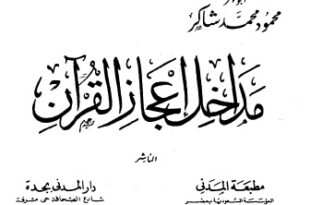 أبو فهر
محمود محمد شاكر
مداخل إعجاز القرآن
الناشر
مطبعة المدني دار المدني بجدة
المؤسسة السعودية بمصر شارع الصحافة حي مشرفة